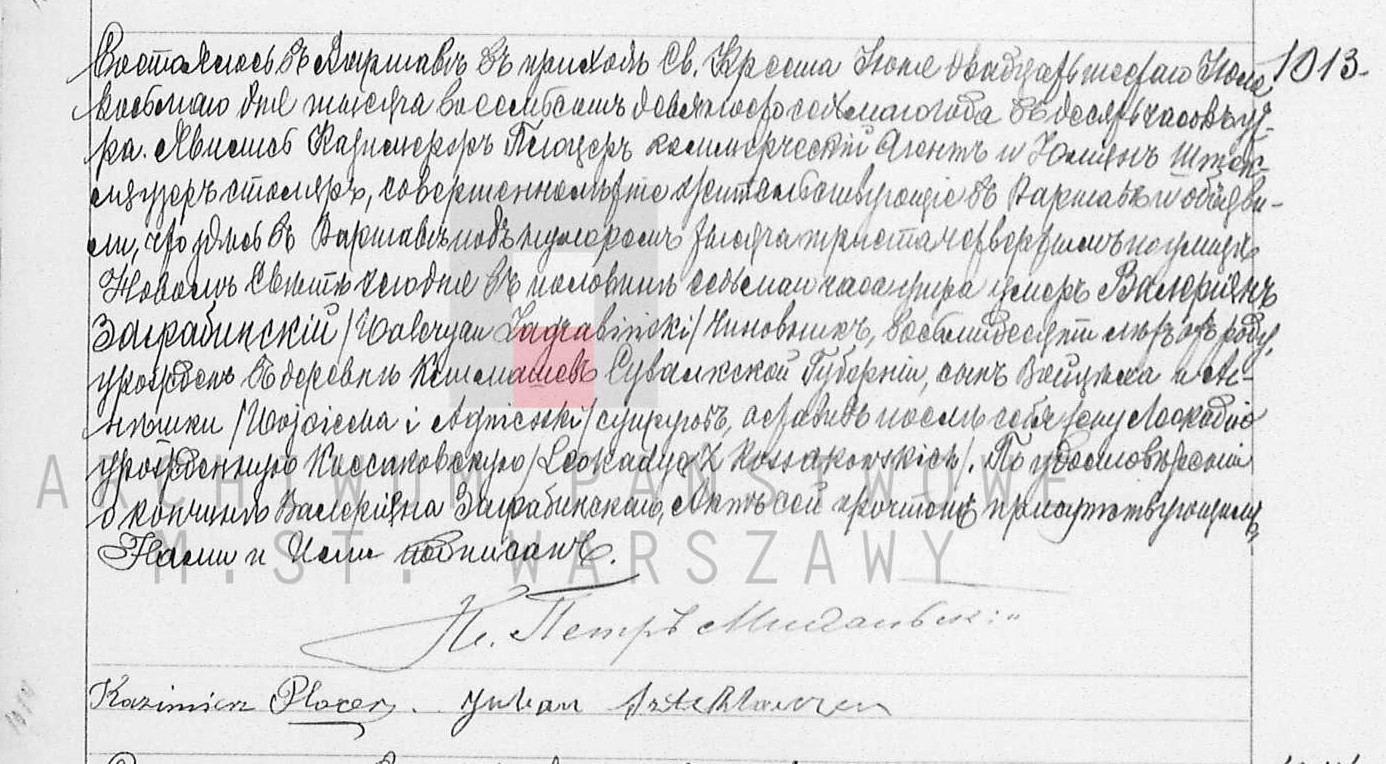 Состоялось въ Варшавѣ въ приходѣ Св. Креста Іюня двадцать шестаго Іюля 1013.
восьмаго дня тысяча восемьсотъ девяносто седьмаго года въ десять часовъ ут-
ра. Явились Казимержъ Плоцеръ коммерческій Агентъ и Юліянъ Штек-
столяръ, совершеннолѣтніе жительствующіе въ Варшавѣ и объяви-
ли, что здѣсь въ Варшавѣ подъ нумеромъ тысяча триста четвертымъ по улицѣ
Новомъ Свѣтѣ сегодня въ половинѣ седьмаго часа утра умеръ Валеріянъ
Заграбинскій /Waleryan Zagrabiński/ Чиновникъ, восьмидесяти лѣтъ отъ роду,
урожденъ въ деревнѣ Сувалкской Губерніи, сынъ Войцѣха и Аг-
нѣшки /Wojciecha i Agnieszki/ супруговъ, оставивъ послѣ себя жену Леокадію
урожденную Коссаковскую /Leokadyą z Kossakowskich/. По удостовѣреніи
о кончинѣ Валеріяна Заграбинскаго, Актъ сей прочтенъ присутствующимъ,
Нами и Ими подписанъ.
Кс. Петръ
Kazimierz Placer. Julian
ARCHIWUM PAŃSTWOWE
M.ST. WARSZAWY